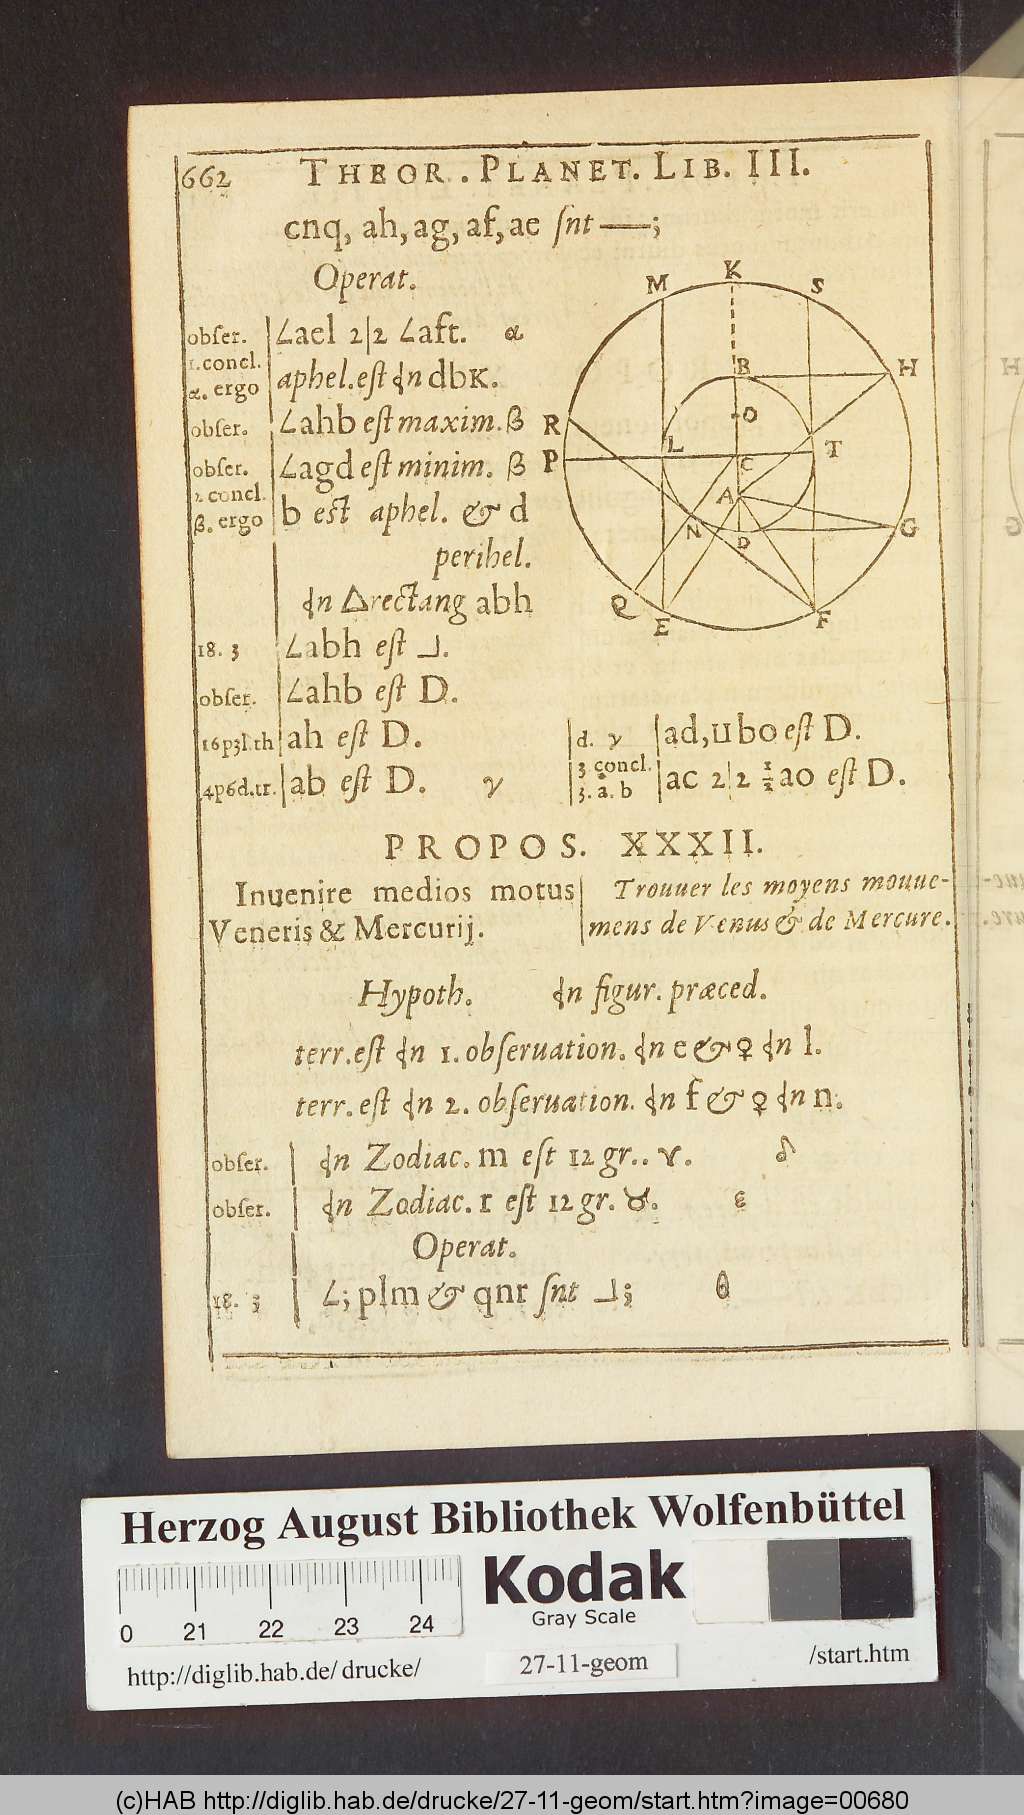 662 THEOR. PLANET. LIB. III.
cnq, ah, ag, af, ae ſnt —;
Operat.
obſer. ∠ael 2|2 ∠aft. α
1. concl.
α. ergo aphel. eſt in dbK.
obſer. ∠ahb eſt maxim. β
obſer. ∠agd eſt minim. β
2 concl.
β. ergo b est aphel. & d
perihel.
in △rectang abh
18. 3 ∠abh eſt ⅃.
obſer. ∠ahb eſt D.
16p3l.th ah eſt D.
4p6d.tr. ab eſt D. γ
d. γ ad, u bo eſt D.
3 concl.
3. a. b ac 2|2 ½ ao eſt D.
M K S
H
B
R O
P L T
C
A
N D G
Q E F
PROPOS. XXXII.
Inuenire medios motus
Veneris & Mercurij.
Trouuer les moyens mouue-
mens de Venus & de Mercure.
Hypoth. in figur. præced.
terr. eſt in 1. obſeruation. in e & ♀ in l.
terr. eſt in 2. obſeruation. in f & ♀ in n.
obſer. in Zodiac. m est 12 gr.. ♈. δ
obſer. in Zodiac. r eſt 12 gr. ♉. ε
Operat.
18. 3 ∠; plm & qnr ſnt ⅃; θ
Herzog August Bibliothek Wolfenbüttel
Kodak
Gray Scale
0 21 22 23 24
http://diglib.hab.de/ drucke/ 27-11-geom /start.htm
(c)HAB http://diglib.hab.de/drucke/27-11-geom/start.htm?image=00680